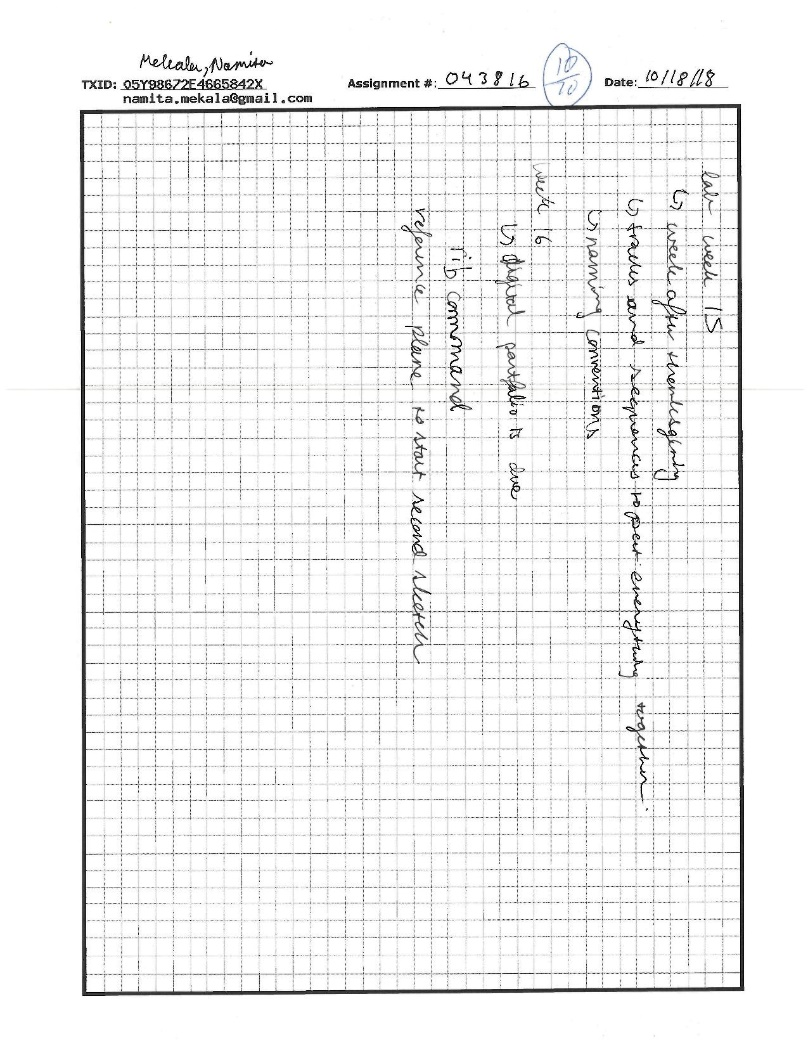 Mekala, Namita
TXID: 05Y98672E4665842X
namita.mekala@gmail.com
Assignment #: 043816
10/10
Date: 10/18/18
lab week 15
↳ week after thanksgiving
↳ tracks and sequences to put everything together.
↳ naming conventions
week 16
↳ digital portfolio is due
rib command
reference plane to start second sketch